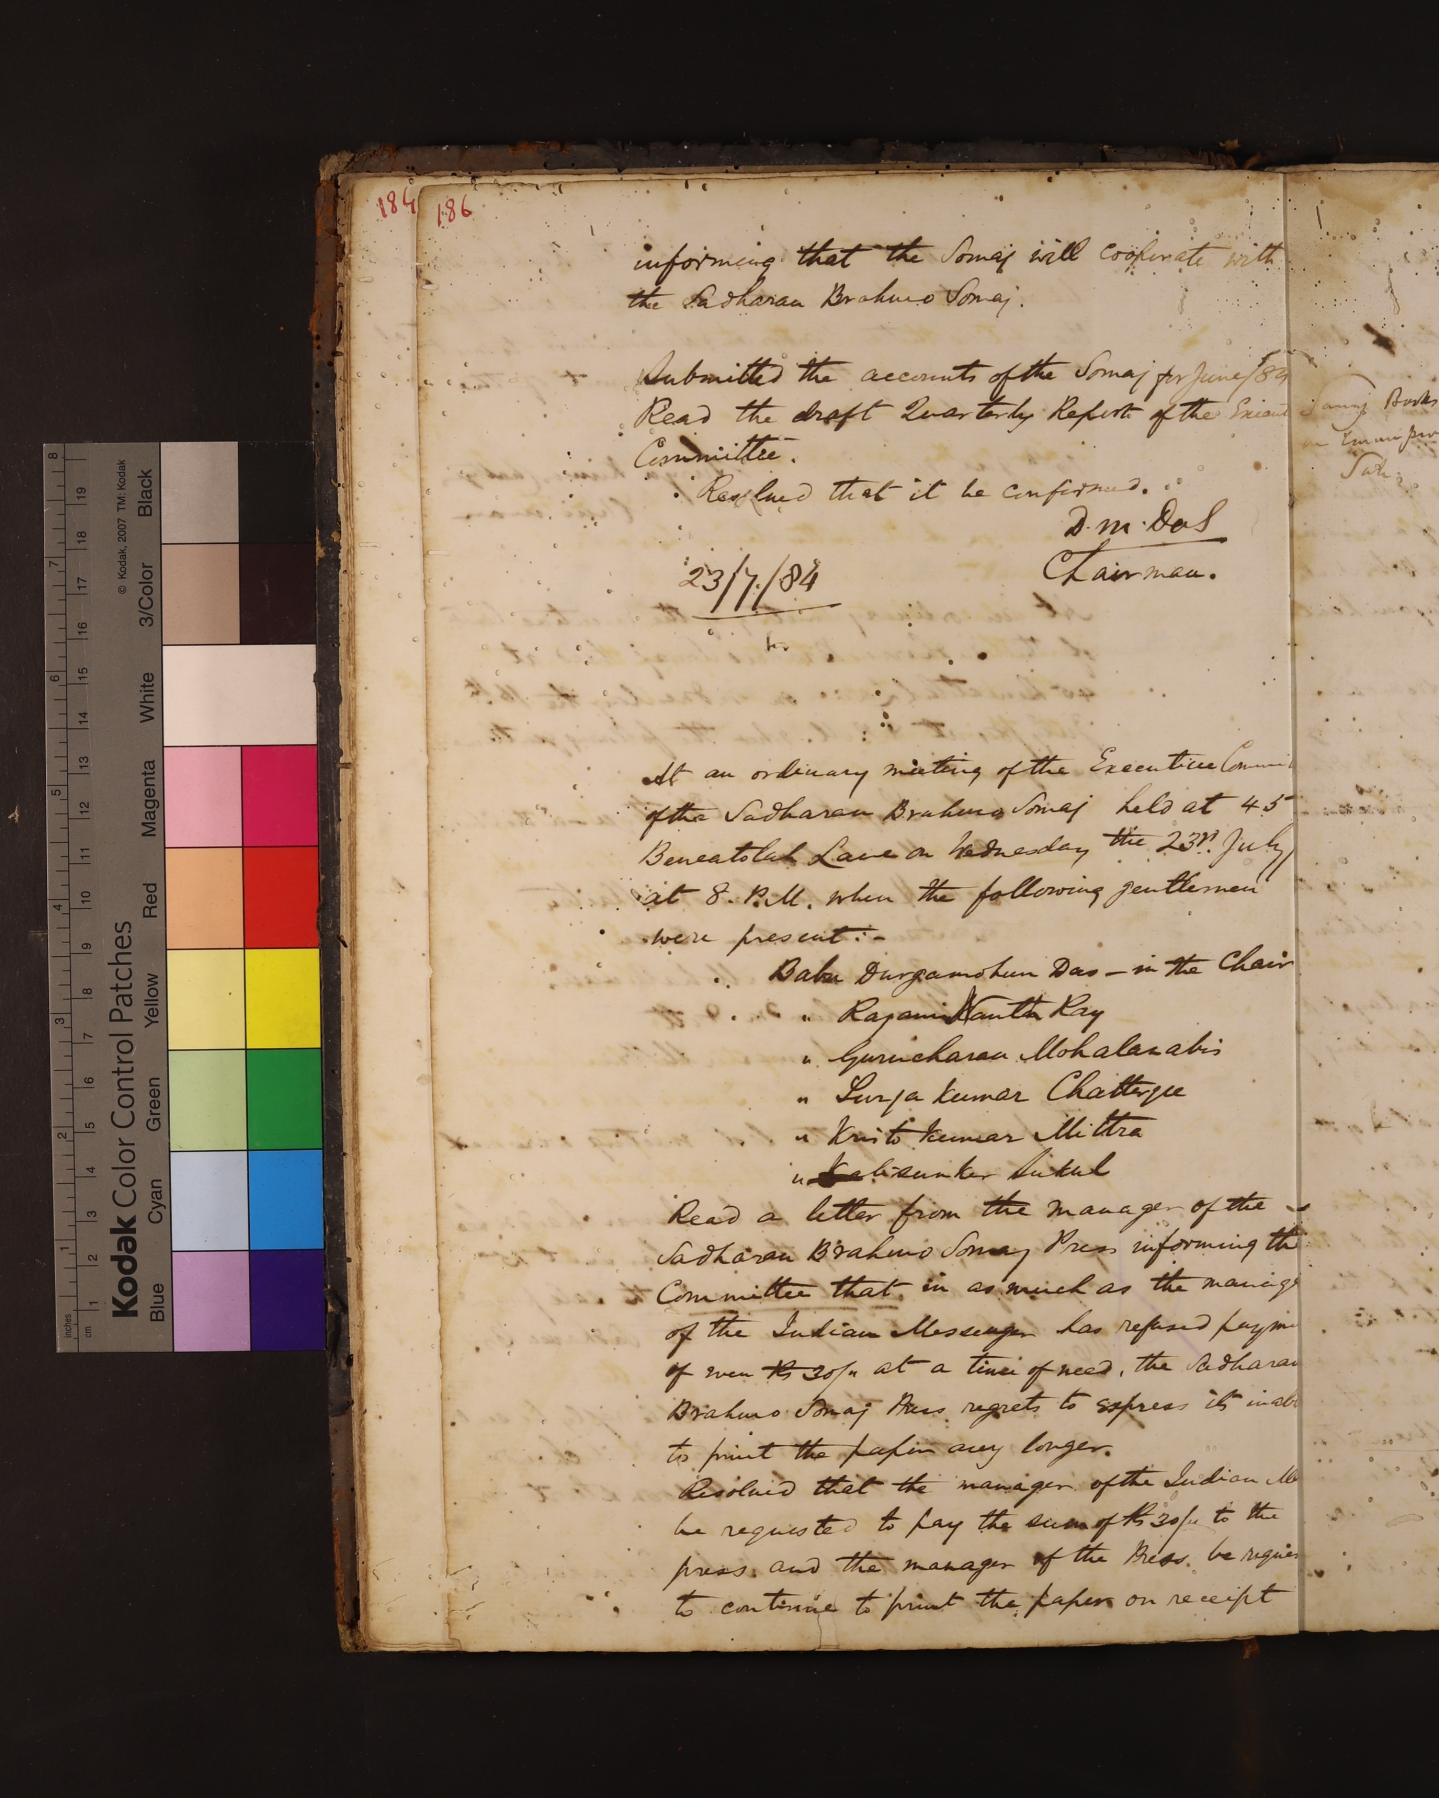 184
186
informing that the Somaj will cooperate with
the Sadharan Brahmo Somaj.
Submitted the accounts of the Somaj for June/84
Read the draft Quarterly Report of the
Committee.
Resolved that it be confirmed.
D. M. Das
Chairman.
23/7/84
At an ordinary meeting of the Executive Commi
of the Sadharan Brahmo Somaj held at 45
Beneatolah Lane on Wednesday the 23rd. July
at 8. P.M. when the following gentlemen
were present:-
Babu Durgamohun Das – in the Chair
" Rajani Kanth Ray
" Gurucharan Mohalanabis
" Surja Kumar Chatterjee
" Kristo Kumar Mittra
" Kalisunker Sukul
Read a letter from the manager of the
Sadharan Brahmo Somaj Press informing the
Committee that in as much as the manage
of the Indian Messenger has refused payme
of even Rs 30/" at a time of need, the Sadharan
Brahmo Somaj Press regrets to express its inabi
to print the paper any longer.
Resolved that the manager of the Indian Me
be requested to pay the sum of Rs 30/" to the
press and the manager of the Press be reques
to continue to print the paper on receipt
Books
Kodak Color Control Patches
© Kodak, 2007 TM: Kodak
Blue
Cyan
Green
Yellow
Red
Magenta
White
3/Color
Black
inches
1
2
3
4
5
6
7
8
cm
1
2
3
4
5
6
7
8
9
10
11
12
13
14
15
16
17
18
19